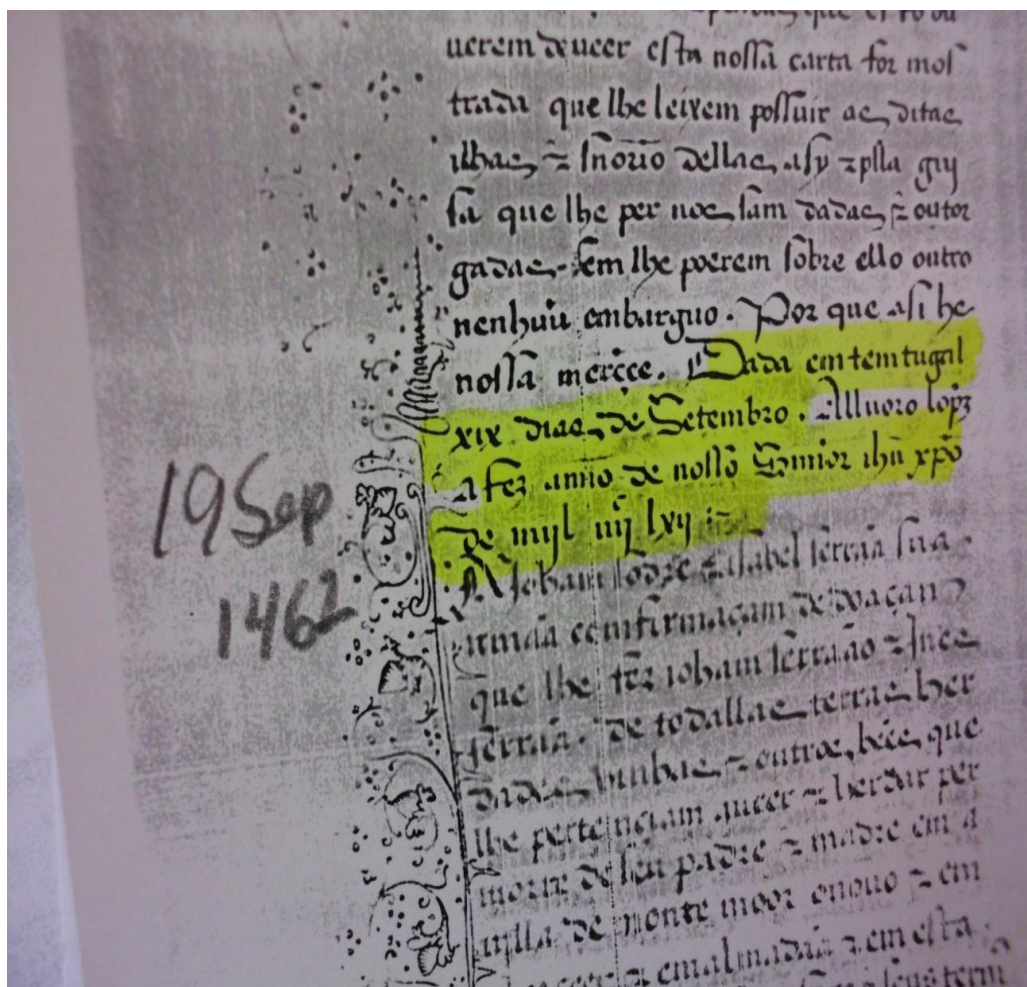 uerem de ueer esta nossa carta for mos
trada que lhe leixem possuir as ditas
ilhas z sñorio dellas asy z plla guy
sa que lhe per nos sam dadas z outor
gadas. sem lhe poerem sobre ello outro
nenhuũ embarguo. Por que asi he
nossa mercee. Dada em temtugal
xix dias de Setembro. Alluoro lopz
a fez anno de nosso Senhor ihũ xpõ
de myl iiij lxij
19 Sep
1462
A Joham rodrz z isabel ferrãa sua
irmãa comfirmaçam de doaçan
que lhe fez joham ferraão z Ines
ferrãa. de todallas terras her
dades vinhas z outros bẽes que
lhe pertenciam auer z herdar per
morte de seu padre z madre em a
uylla de monte moor o nouo z em
z em almadãa z em esta